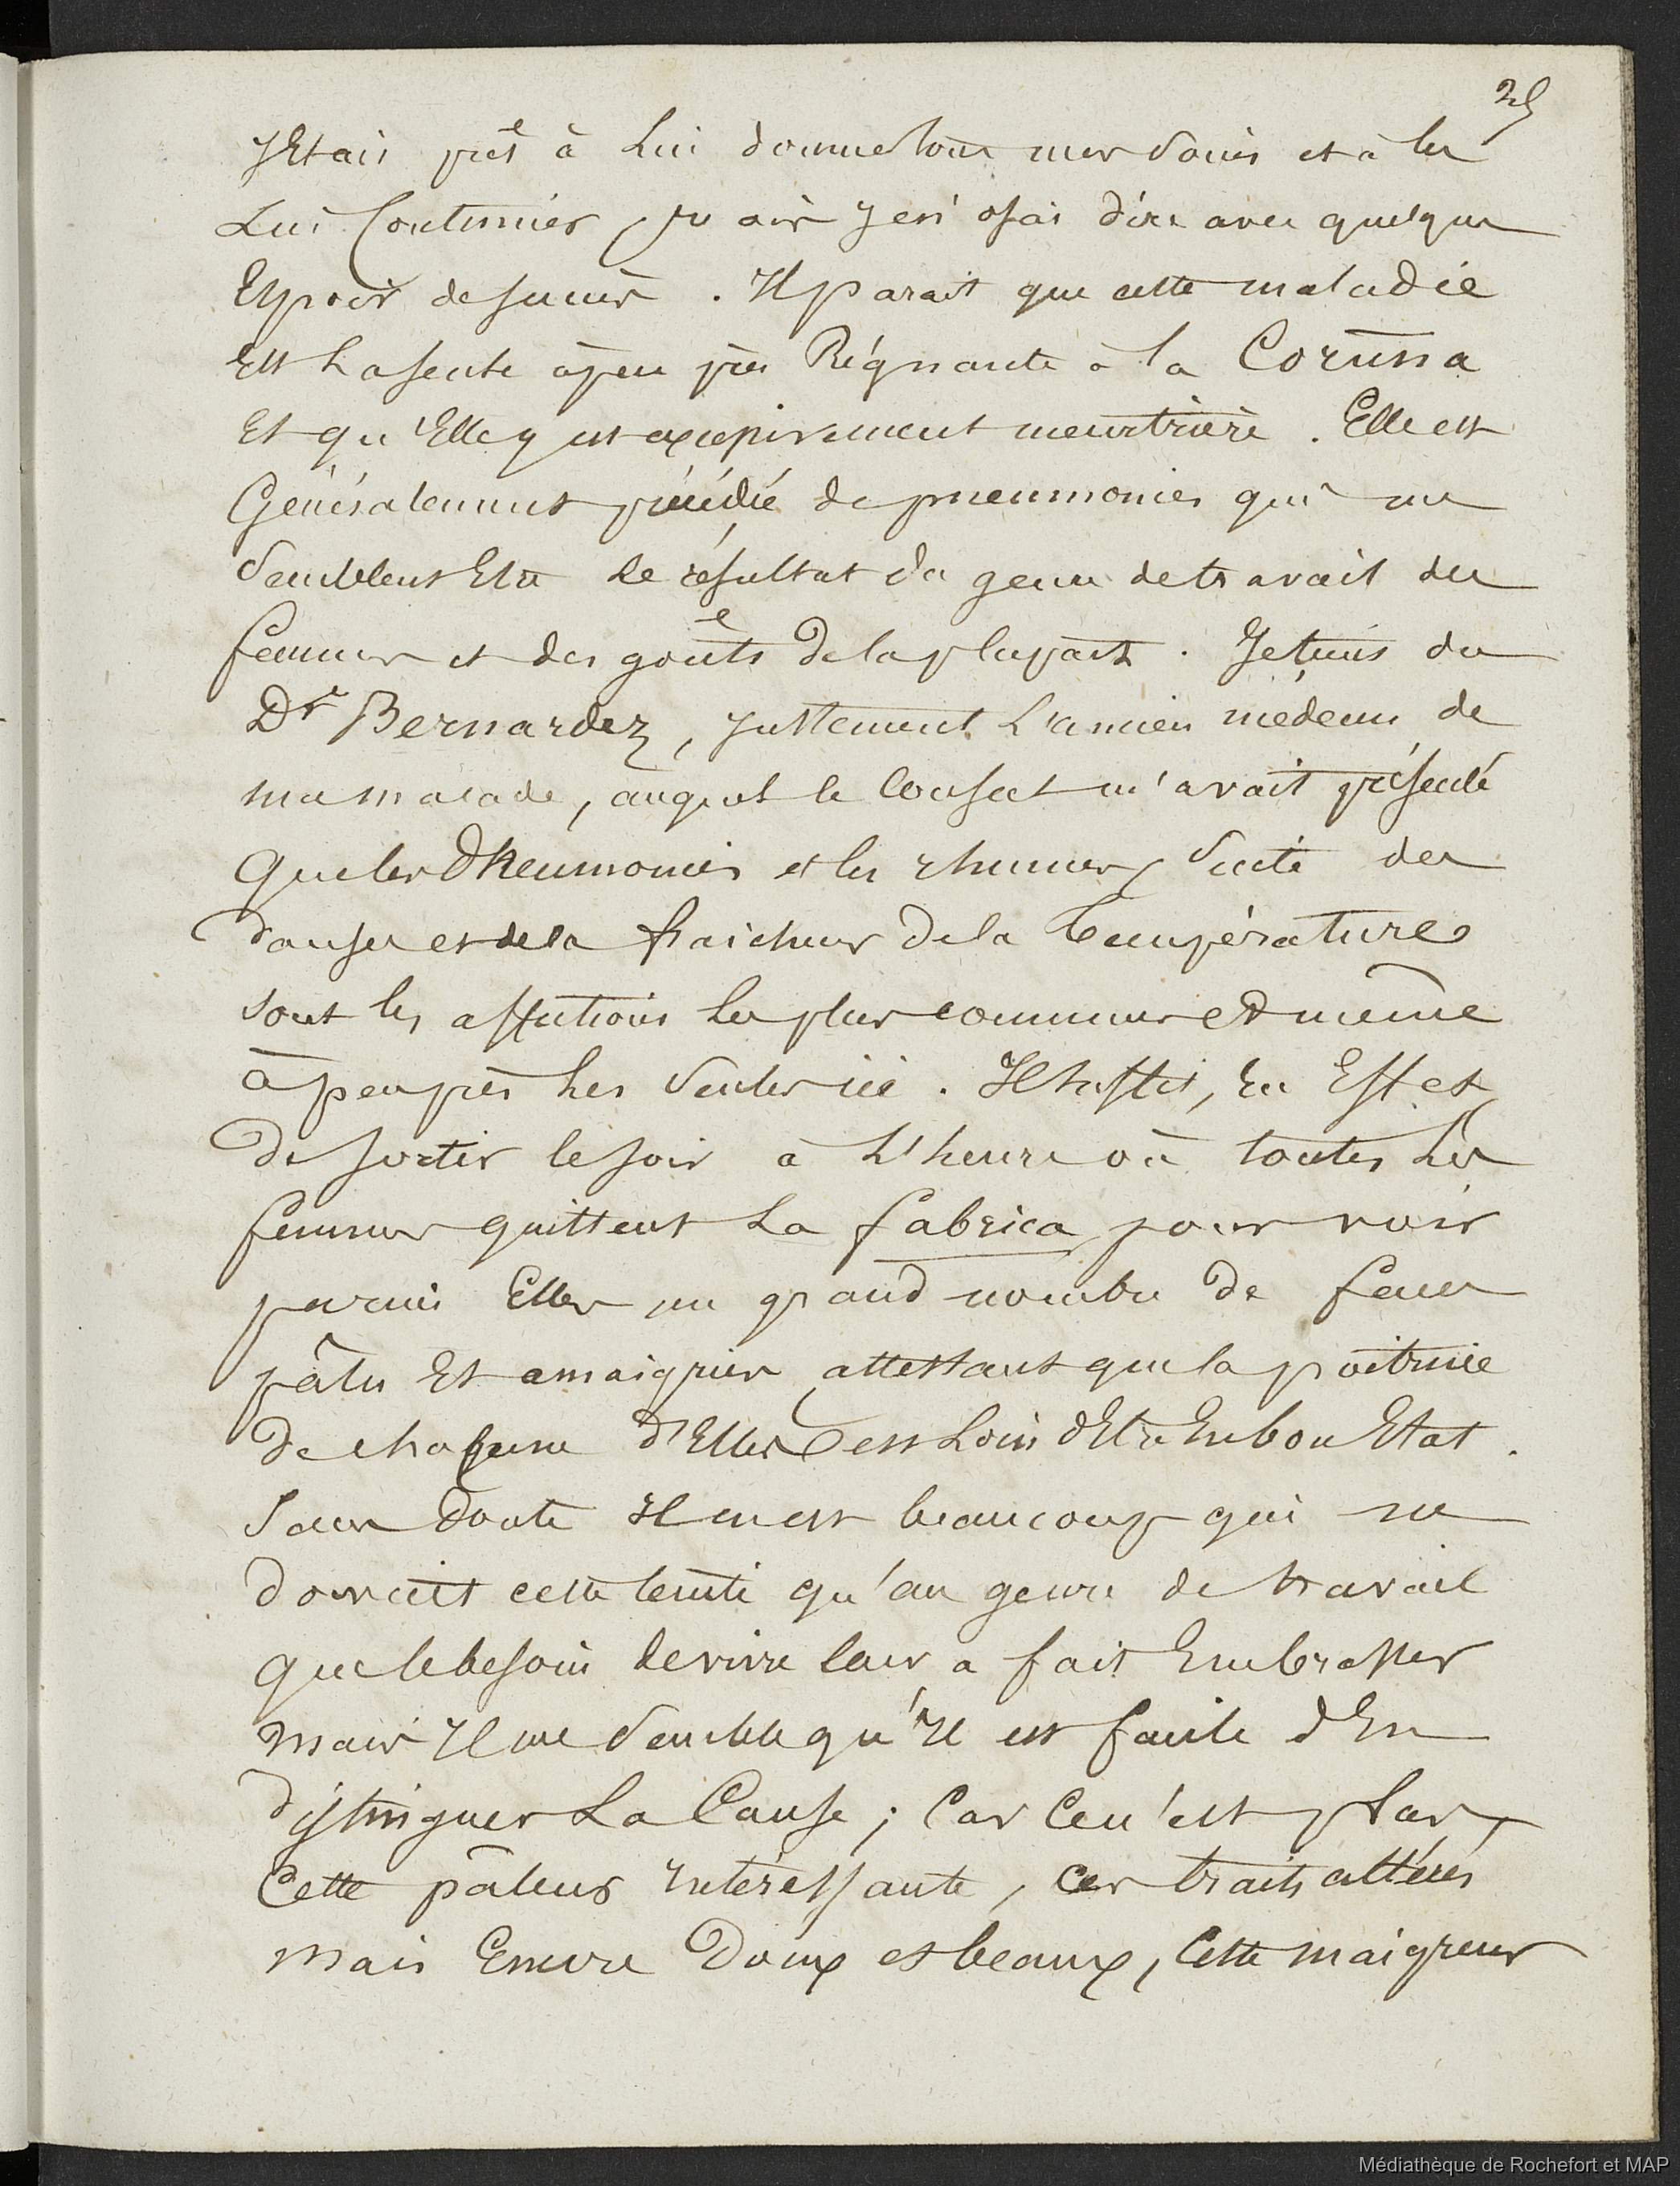 25
J'Etais prêt à Lui donner tous mes soins et à les
Lui Continuer, je n'ose dire avec quelque
Espoir de succès. Il parait que cette maladie
Est La seule àpeu près Régnante à la Coruna
Et qu'Elle y est excessivement meurtrière. Elle est
Généralement précédée de pneumonies qui me
Semblent Etre le résultat du genre de travail des
femmes et des goûts de la plupart. Je tiens du
Dr Bernardez, justement L'ancien médecin de
ma malade, auquel le Consul m'avait présenté
Que les Pneumonies et les rhumes, Suite des
danses et de la fraicheur de la Température
sont les affections les plus communes et même
à peu près Les Seules ici. Il suffit, En Effet
De sortir le soir à L'heure où toutes Les
femmes quittent La fabrica pour voir
parmi Elles un grand nombre de faces
pâles Et amaigries, attestant que la poitrine
De chacune d'Elles est Loin d'Etre En bon Etat.
Sans doute Il en est beaucoup qui ne
doivent cette teinte qu'au genre de travail
que le besoin de vivre leur a fait Embrasser
mais Il me Semble qu'Il est facile d'En
distinguer La Cause; Car Ce n'est plus,
Cette pâleur Intéressante, ces traits altérés
mais Encore Doux et beaux, Cette maigreur
Médiathèque de Rochefort et MAP